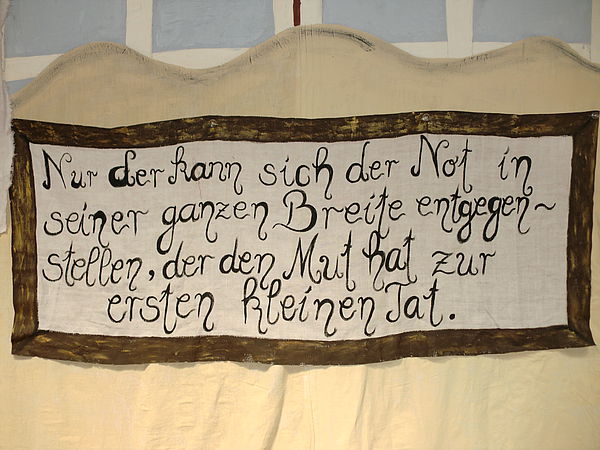 Nur der kann sich der Not in
seiner ganzen Breite entgegen~
stellen, der den Mut hat zur
ersten kleinen Tat.